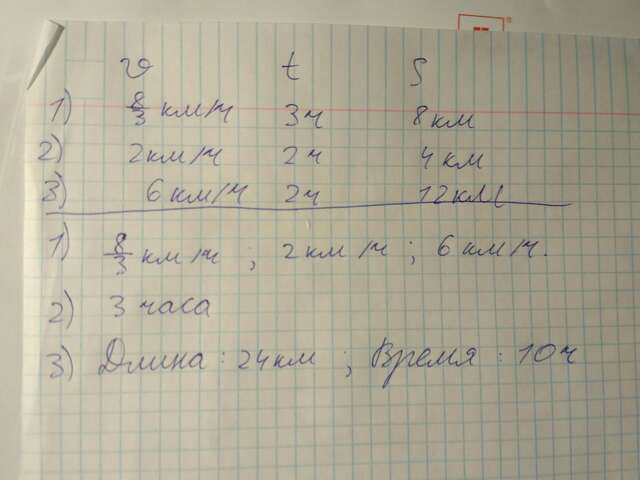 v t S
1) 8/3 км/ч 3ч 8км
2) 2км/ч 2ч 4км
3) 6км/ч 2ч 12км
1) 8/3 км/ч ; 2км/ч ; 6км/ч.
2) 3 часа
3) Длина : 24км ; Время : 10ч